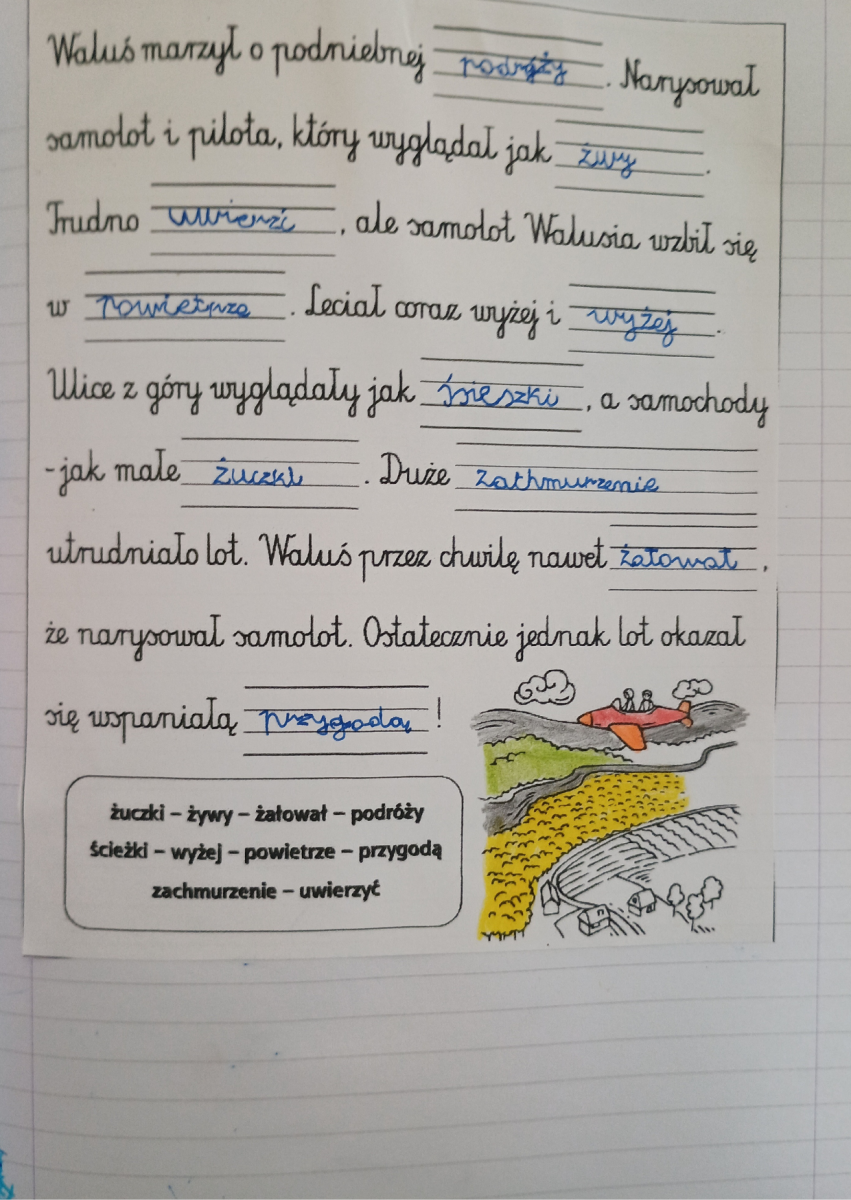 Waluś marzył o podniebnej podróży. Narysował
samolot i pilota, który wyglądał jak żwy.
Trudno uwierzć, ale samolot Walusia wzbił się
w powietrze. Leciał coraz wyżej i wyżej.
Ulice z góry wyglądały jak śieszki, a samochody
-jak małe żuczki. Duże zathmurzenie
utrudniało lot. Waluś przez chwilę nawet żatowat,
że narysował samolot. Ostatecznie jednak lot okazał
się wspaniałą przygodą!
żuczki – żywy – żałował – podróży
ścieżki – wyżej – powietrze – przygodą
zachmurzenie – uwierzyć